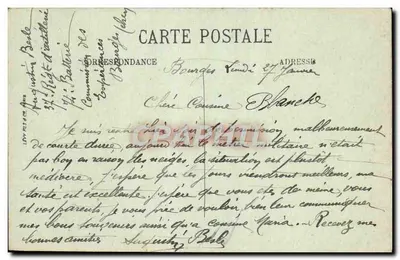 CARTE POSTALE
CORRESPONDANCE
ADRESSE
Augustin Besle
37e Régt d'artillerie
74e Batterie
Commission des
Expériences
Bourges (Cher)
Bourges Lundi 27 Janvier
Chère Cousine Blanche
Je suis permission malheureusement
de courte durée, aujourd militaire n'était
pas bon en raison des neiges la situation est plutôt
médiocre, j'espère que les jours viendront meilleurs, ma
santé est excellente. J'espère que vous etes de meme, vous
et vos parents, je vous prie de vouloir bien leur communiquer
mes bons souvenirs ainsi qu'a cousine Maria. Recevez mes
bonnes amitiés Augustin Besle